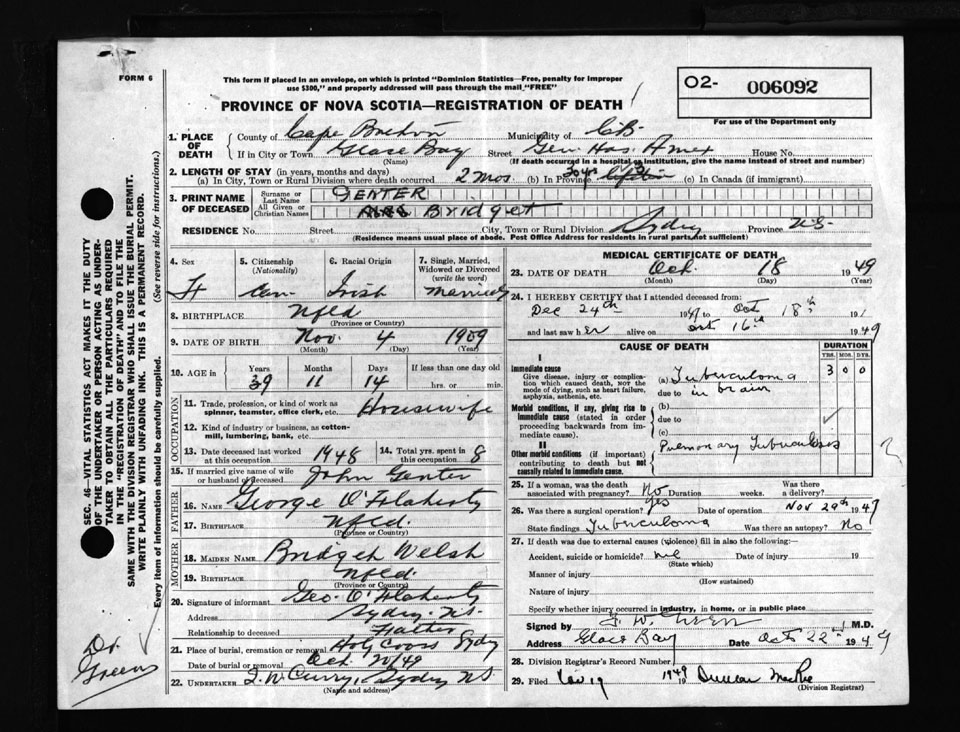 FORM 6
This form if placed in an envelope, on which is printed "Dominion Statistics—Free, penalty for improper
use $300," and properly addressed will pass through the mail "FREE"
O2- 006092
For use of the Department only
PROVINCE OF NOVA SCOTIA—REGISTRATION OF DEATH
1. PLACE OF DEATH { County of Cape Breton Municipality of C.B.
If in City or Town Glace Bay Street Gen. Hos. Annex House No.
(Name) (If death occurred in a hospital or institution, give the name instead of street and number)
2. LENGTH OF STAY (in years, months and days)
(a) In City, Town or Rural Division where death occurred 2 mos. (b) In Province 30 yrs (c) In Canada (if immigrant)
3. PRINT NAME OF DECEASED { Surname or Last Name GENTER
All Given or Christian Names Bridget
RESIDENCE No. Street City, Town or Rural Division Sydney Province N.S.
(Residence means usual place of abode. Post Office Address for residents in rural parts, not sufficient)
4. Sex F
5. Citizenship (Nationality) Can
6. Racial Origin Irish
7. Single, Married, Widowed or Divorced (write the word) Married
8. BIRTHPLACE Nfld
(Province or Country)
9. DATE OF BIRTH Nov. 4 1909
(Month) (Day) (Year)
10. AGE in { Years 39 Months 11 Days 14 If less than one day old hrs. or min.
OCCUPATION
11. Trade, profession, or kind of work as spinner, teamster, office clerk, etc. Housewife
12. Kind of industry or business, as cotton-mill, lumbering, bank, etc.
13. Date deceased last worked at this occupation 1948 14. Total yrs. spent in this occupation 8
15. If married give name of wife or husband of deceased John Genter
FATHER
16. Name George O'Flaherty
17. Birthplace Nfld.
(Province or Country)
MOTHER
18. Maiden Name Bridget Welsh
19. Birthplace Nfld.
(Province or Country)
20. Signature of informant Geo. O'Flaherty
Address Sydney N.S.
Relationship to deceased Father
21. Place of burial, cremation or removal Holy Cross Sydney
Date of burial or removal Oct. /49
22. UNDERTAKER Curry, Sydney N.S.
(Name and address)
MEDICAL CERTIFICATE OF DEATH
23. DATE OF DEATH Oct. 18 1949
(Month) (Day) (Year)
24. I HEREBY CERTIFY that I attended deceased from:
Dec 24th 1947 to Oct 18th 19
and last saw her alive on Oct 16th 1949
CAUSE OF DEATH DURATION
YRS. MOS. DYS.
I
Immediate cause
Give disease, injury or complication which caused death, not the mode of dying, such as heart failure, asphyxia, asthenia, etc.
(a) Tuberculoma 3 0 0
due to in brain
Morbid conditions, if any, giving rise to immediate cause (stated in order proceeding backwards from immediate cause).
(b)
due to
(c)
II
Other morbid conditions (if important) contributing to death but not causally related to immediate cause.
Pulmonary Tuberculosis
25. If a woman, was the death associated with pregnancy? No Duration weeks. Was there a delivery?
26. Was there a surgical operation? Yes Date of operation Nov 29th 1947
State findings Tuberculoma Was there an autopsy? No
27. If death was due to external causes (violence) fill in also the following:—
Accident, suicide or homicide? Date of injury 19
(State which)
Manner of injury
(How sustained)
Nature of injury
Specify whether injury occurred in industry, in home, or in public place
Signed by Green M.D.
Address Glace Bay Date Oct 22nd 1949
28. Division Registrar's Record Number
29. Filed Nov 19 1949 19 Duncan MacRae
(Division Registrar)
SEC. 46—VITAL STATISTICS ACT MAKES IT THE DUTY
OF THE UNDERTAKER OR PERSON ACTING AS UNDER-
TAKER TO OBTAIN ALL THE PARTICULARS REQUIRED
IN THE "REGISTRATION OF DEATH" AND TO FILE THE
SAME WITH THE DIVISION REGISTRAR WHO SHALL ISSUE THE BURIAL PERMIT.
WRITE PLAINLY WITH UNFADING INK. THIS IS A PERMANENT RECORD.
Every item of information should be carefully supplied. (See reverse side for instructions.)
Dr.
Green